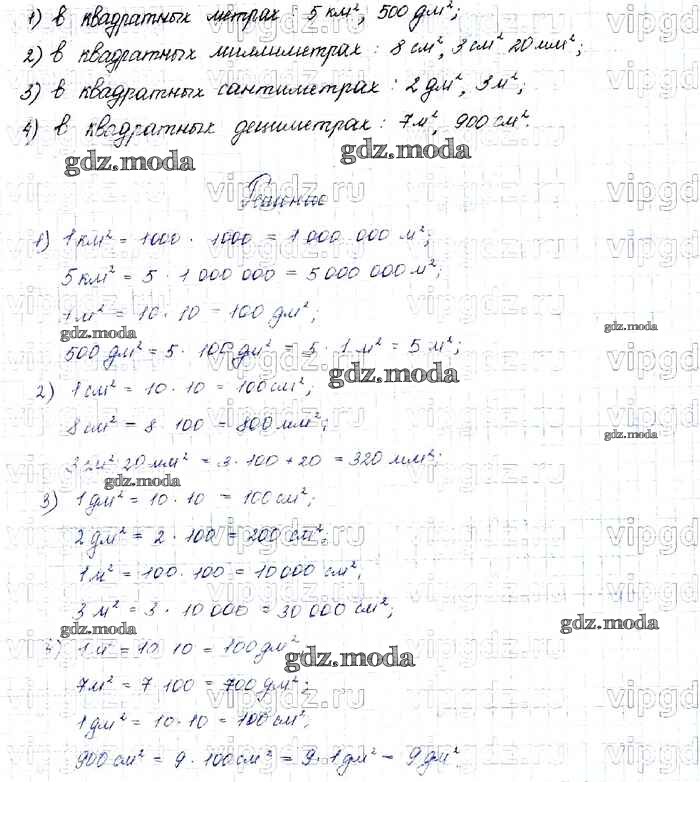 1) в квадратных метрах 5 км², 500 дм²;
2) в квадратных миллиметрах: 8 см², 3 см² 20 мм²;
3) в квадратных сантиметрах: 2 дм², 3 м²;
4) в квадратных дециметрах: 7 м², 900 см².
gdz.moda gdz.moda
Решение
1) 1 км² = 1000 · 1000 = 1 000 000 м²;
5 км² = 5 · 1 000 000 = 5 000 000 м²;
1 м² = 10 · 10 = 100 дм²;
gdz.moda gdz.moda
500 дм² = 5 · 100 дм² = 5 · 1 м² = 5 м²;
gdz.moda
2) 1 см² = 10 · 10 = 100 см²;
8 см² = 8 · 100 = 800 мм²;
gdz.moda
3 см² 20 мм² = 3 · 100 + 20 = 320 мм²;
gdz.moda
3) 1 дм² = 10 · 10 = 100 см²;
2 дм² = 2 · 100 = 200 см²;
1 м² = 100 · 100 = 10 000 см²;
3 м² = 3 · 10 000 = 30 000 см²;
gdz.moda gdz.moda
1 м² = 10 · 10 = 100 дм²
gdz.moda
7 м² = 7 · 100 = 700 дм²;
1 дм² = 10 · 10 = 100 см²;
900 см² = 9 · 100 см² = 9 · 1 дм² = 9 дм².